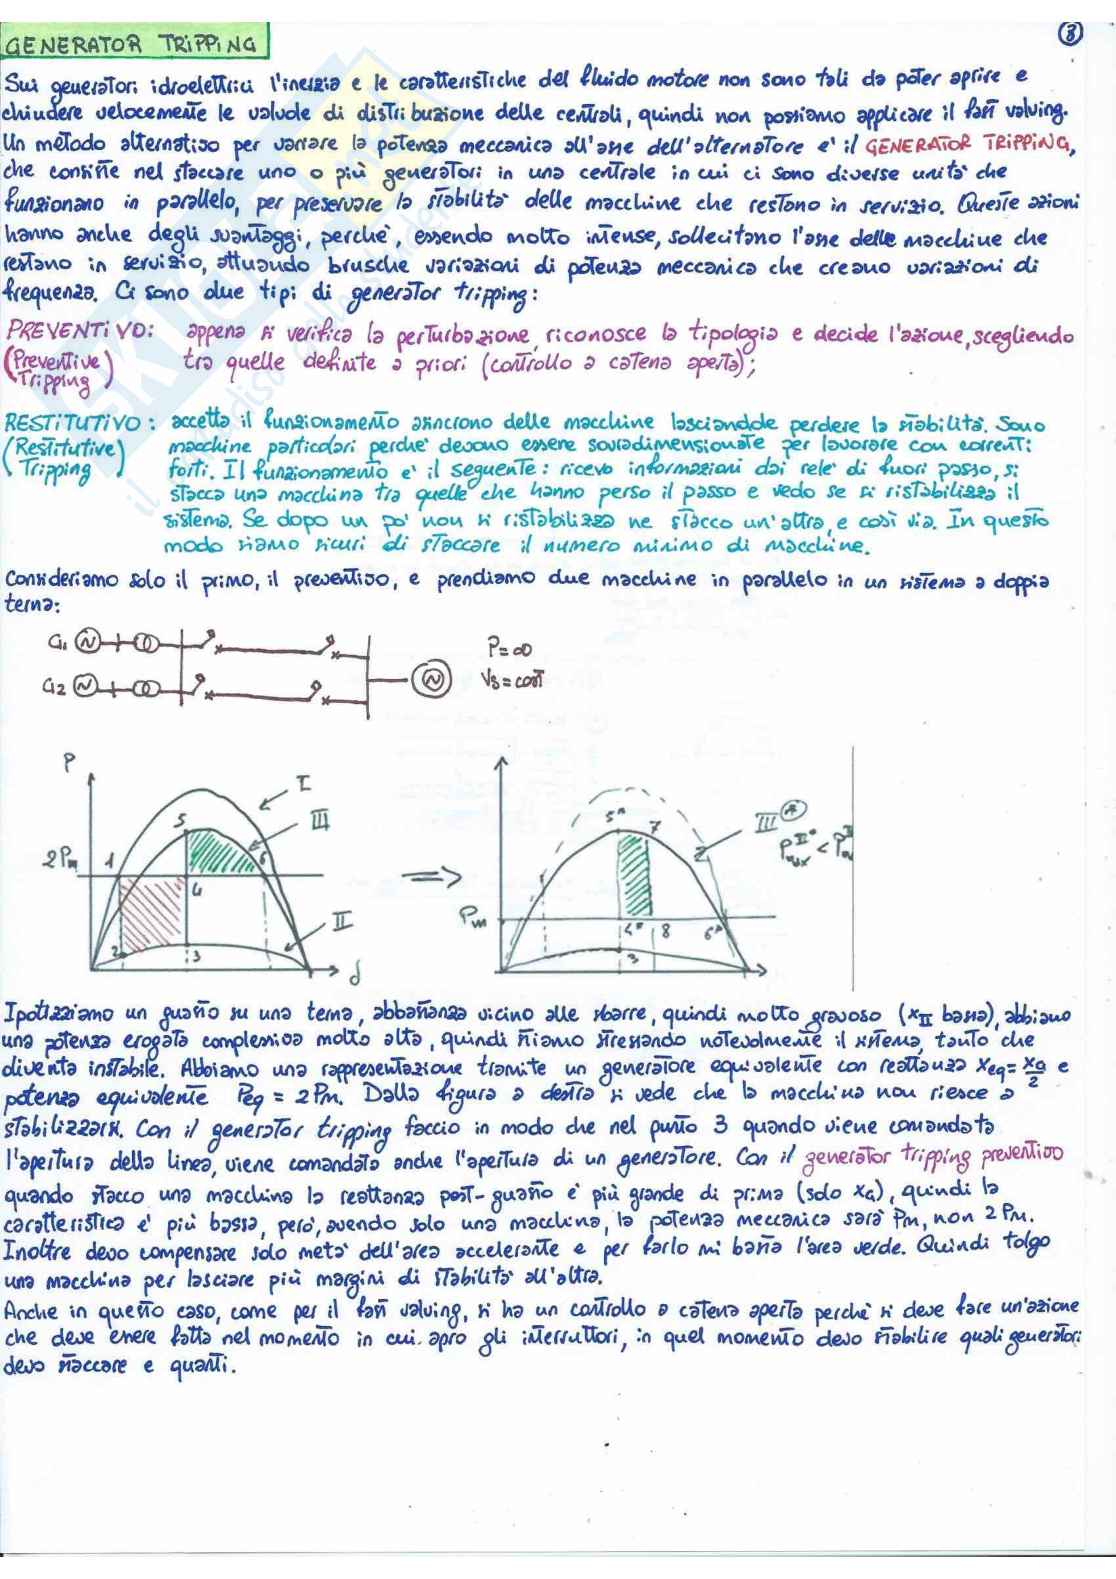 GENERATOR TRIPPING
8
Sui generatori idroelettrici l'inerzia e le caratteristiche del fluido motore non sono tali da poter aprire e
chiudere velocemente le valvole di distribuzione delle centrali, quindi non possiamo applicare il fast valving.
Un metodo alternativo per variare la potenza meccanica all'asse dell'alternatore e' il GENERATOR TRIPPING,
che consiste nel staccare uno o più generatori in una centrale in cui ci sono diverse unità che
funzionano in parallelo, per preservare la stabilità delle macchine che restano in servizio. Queste azioni
hanno anche degli svantaggi, perchè, essendo molto intense, sollecitano l'asse delle macchine che
restano in servizio, attuando brusche variazioni di potenza meccanica che creano variazioni di
frequenza. Ci sono due tipi di generator tripping:
PREVENTIVO: appena si verifica la perturbazione, riconosce la tipologia e decide l'azione, scegliendo
(Preventive tra quelle definite a priori (controllo a catena aperta);
Tripping)
RESTITUTIVO: accetta il funzionamento asincrono delle macchine lasciandole perdere la stabilità. Sono
(Restitutive macchine particolari perchè devono essere sovradimensionate per lavorare con correnti
Tripping) forti. Il funzionamento e' il seguente: ricevo informazioni dai relè di fuori passo, si
stacca una macchina tra quelle che hanno perso il passo e vedo se si ristabilizza il
sistema. Se dopo un po' non si ristabilizza ne stacco un'altra, e così via. In questo
modo siamo sicuri di staccare il numero minimo di macchine.
Consideriamo solo il primo, il preventivo, e prendiamo due macchine in parallelo in un sistema a doppia
terna:
G1
P=∞
G2
Vs=cost
P
I
III
5
6
2Pm
1
4
II
2
3
δ
5*
7
2
III*
Pm
4*
8
6*
3
Ipotizziamo un guasto su una terna, abbastanza vicino alle sbarre, quindi molto gravoso (xII bassa), abbiamo
una potenza erogata complessiva molto alta, quindi stiamo stressando notevolmente il sistema, tanto che
diventa instabile. Abbiamo una rappresentazione tramite un generatore equivalente con reattanza xeq = xG/2 e
potenza equivalente Peq = 2Pm. Dalla figura a destra si vede che la macchina non riesce a
stabilizzarsi. Con il generator tripping faccio in modo che nel punto 3 quando viene comandata
l'apertura della linea, viene comandata anche l'apertura di un generatore. Con il generator tripping preventivo
quando stacco una macchina la reattanza post-guasto e' più grande di prima (solo xG), quindi la
caratteristica e' più bassa, però, avendo solo una macchina, la potenza meccanica sarà Pm, non 2Pm.
Inoltre devo compensare solo metà dell'area accelerante e per farlo mi basta l'area verde. Quindi tolgo
una macchina per lasciare più margini di stabilità all'altra.
Anche in questo caso, come per il fast valving, si ha un controllo a catena aperta perchè si deve fare un'azione
che deve essere fatta nel momento in cui apro gli interruttori, in quel momento devo stabilire quali generatori
devo staccare e quanti.